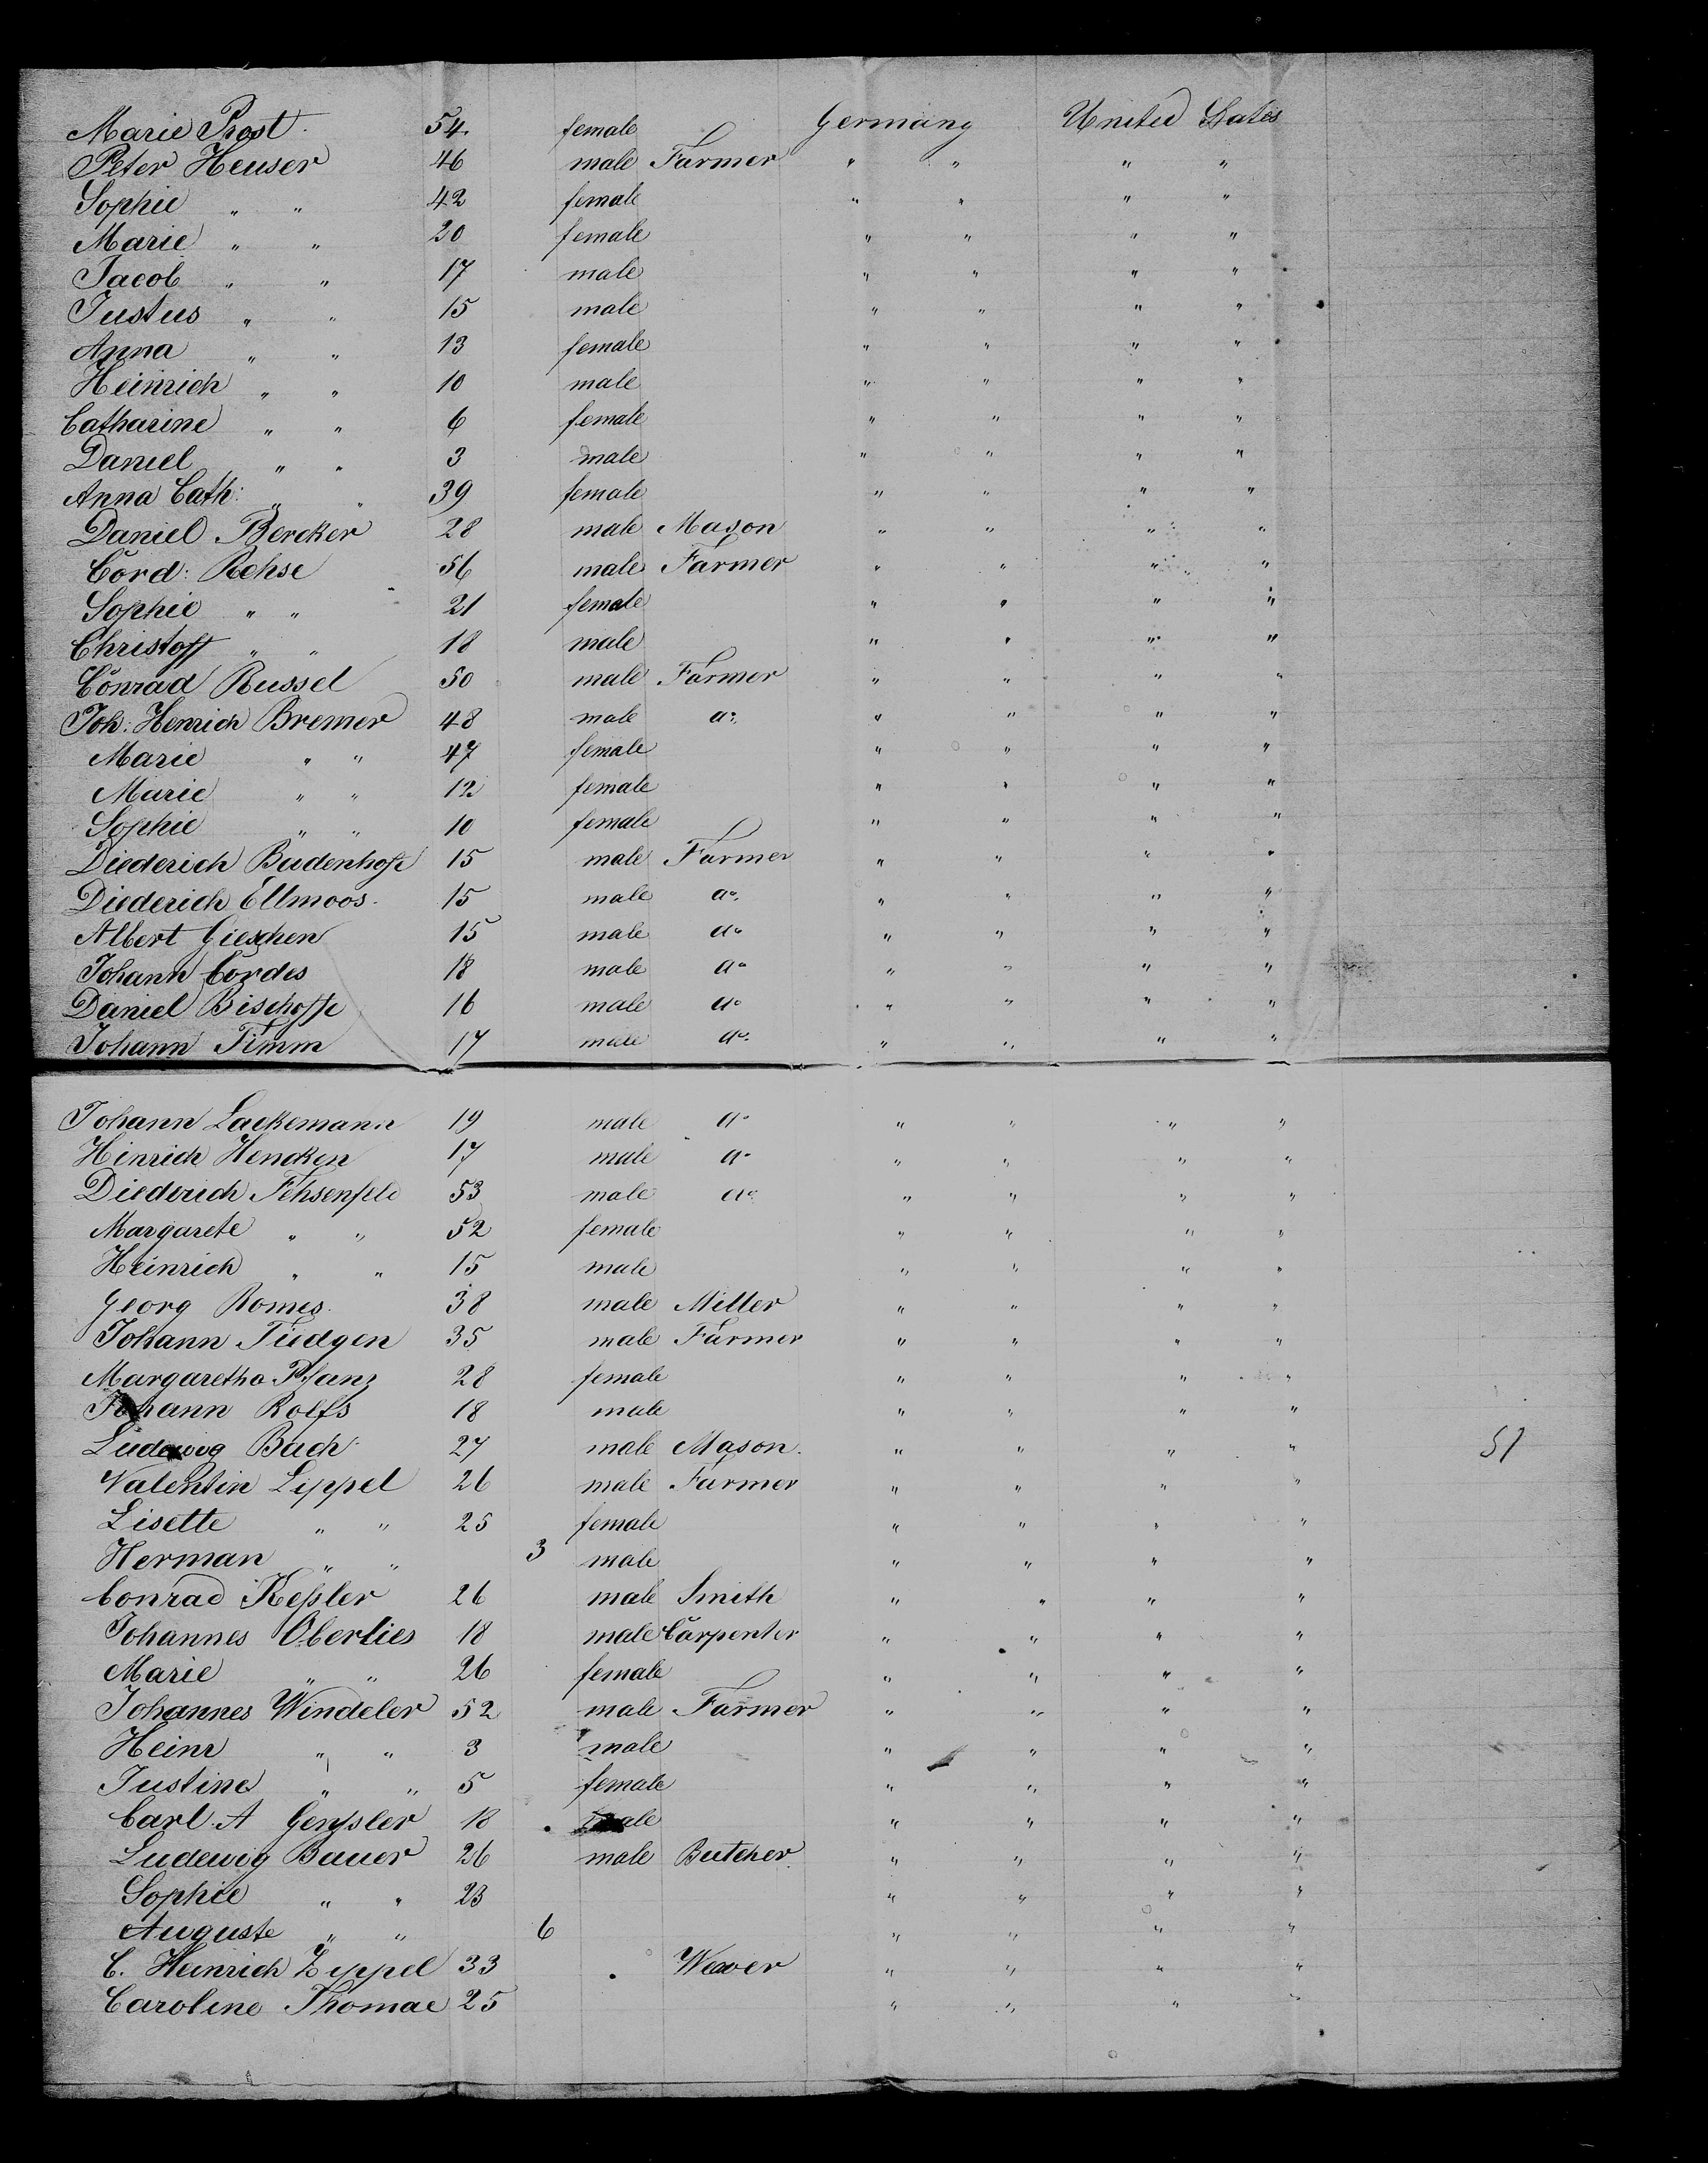 Marie Prost 54. female Germany United States
Peter Heuser 46 male Farmer " " " "
Sophie " " 42 female " " " "
Marie " " 20 female " " " "
Jacob " " 17 male " " " "
Justus " " 15 male " " " "
Anna " " 13 female " " " "
Heinrich " " 10 male " " " "
Catharine " " 6 female " " " "
Daniel " " 3 male " " " "
Anna Cath: " " 39 female " " " "
Daniel Bercker 28 male Mason " " " "
Cord: Rehse 56 male Farmer " " " "
Sophie " " 21 female " " " "
Christoff " " 18 male " " " "
Conrad Russel 50 male Farmer " " " "
Joh: Henrich Bremer 48 male do. " " " "
Marie " " 47 female " " " "
Marie " " 12 female " " " "
Sophie " " 10 female " " " "
Diederich Budenhoff 15 male Farmer " " " "
Diederich Ellmoos. 15 male do. " " " "
Albert Gieschen 15 male do " " " "
Johann Cordes 18 male do " " " "
Daniel Bischoff 16 male do " " " "
Johann Timm 17 male do. " " " "
Johann Lackemann 19 male do " " " "
Hinrich Hencken 17 male do " " " "
Diederich Fehsenfeld 53 male do " " " "
Margarete " " 52 female " " " "
Heinrich " " 15 male " " " "
Georg Romes. 38 male Miller " " " "
Johann Tiedgen 35 male Farmer " " " "
Margaretha Pfanz 28 female " " " "
Johann Rolfs 18 male " " " "
Ludewig Bach 27 male Mason. " " " " 51
Valentin Lippel 26 male Farmer " " " "
Lisette " " 25 female " " " "
Herman " " 3 male " " " "
Conrad Keßler 26 male Smith " " " "
Johannes Oberlies 18 male Carpenter " " " "
Marie " " 26 female " " " "
Johannes Windeler 52 male Farmer " " " "
Heinr " " 3 male " " " "
Justine " " 5 female " " " "
Carl. A Genßler 18 male " " " "
Ludewig Bauer 26 male Butcher " " " "
Sophie " " 23 " " " "
Auguste " " 6 " " " "
C. Heinrich Zippel 33 Weaver " " " "
Caroline Thomae 25 " " " "